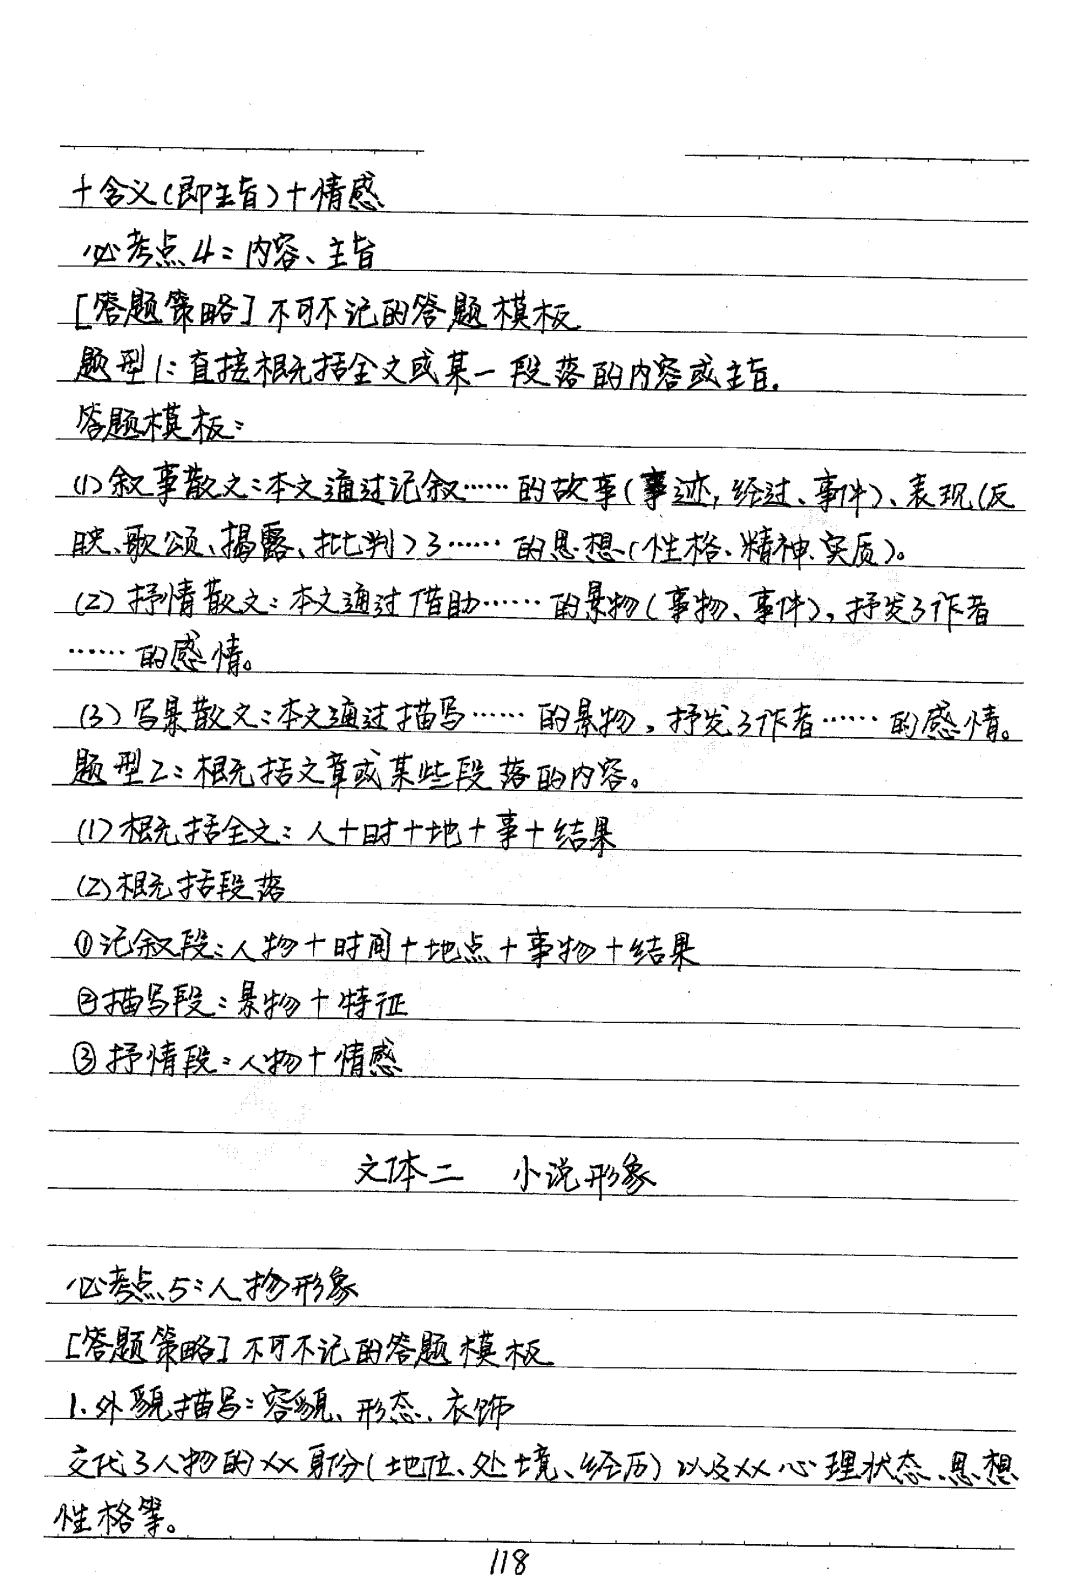 +含义(即主旨)+情感
必考点4:内容、主旨
[答题策略]不可不记的答题模板
题型1:直接概括全文或某一段落的内容或主旨.
答题模板:
(1)叙事散文:本文通过记叙……的故事(事迹,经过、事件)、表现(反
映、歌颂、揭露、批判)了……的思想(性格、精神、实质)。
(2)抒情散文:本文通过借助……的景物(事物、事件),抒发了作者
……的感情。
(3)写景散文:本文通过描写……的景物,抒发了作者……的感情。
题型2:概括文章或某些段落的内容。
(1)概括全文:人+时+地+事+结果
(2)概括段落
①记叙段:人物+时间+地点+事物+结果
②描写段:景物+特征
③抒情段:人物+情感
文体二 小说形象
必考点5:人物形象
[答题策略]不可不记的答题模板
1.外貌描写:容貌、形态、衣饰
交代了人物的××身份(地位、处境、经历)以及××心理状态、思想
性格等。
118